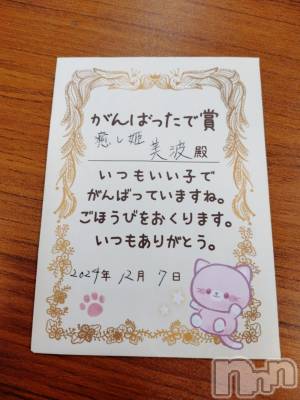 がんばったで賞
癒し姫 美波 殿
いつもいい子で
がんばっていますね。
ごほうびをおくります。
いつもありがとう。
2024年 12月 7日